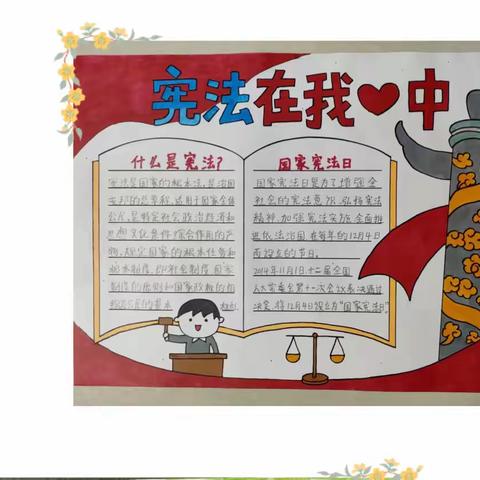 宪法在我❤中
什么是宪法?
宪法是国家的根本法,是治国
安邦的总章程,适用于国家全体
公民,是特定社会政治经济和
思想文化条件综合作用的产
物,规定国家的根本任务和
根本制度,即社会制度、国家
制度的原则和国家政权的组
国家宪法日
国家宪法日是为了增强全
社会的宪法意识,弘扬宪法
精神,加强宪法实施,全面推
进依法治国,在每年的12月4日
而设立的节日。
2014年11月1日,十二届全国
人大常委会第十一次会议表决通过
决定,将12月4日设立为"国家宪法日"。